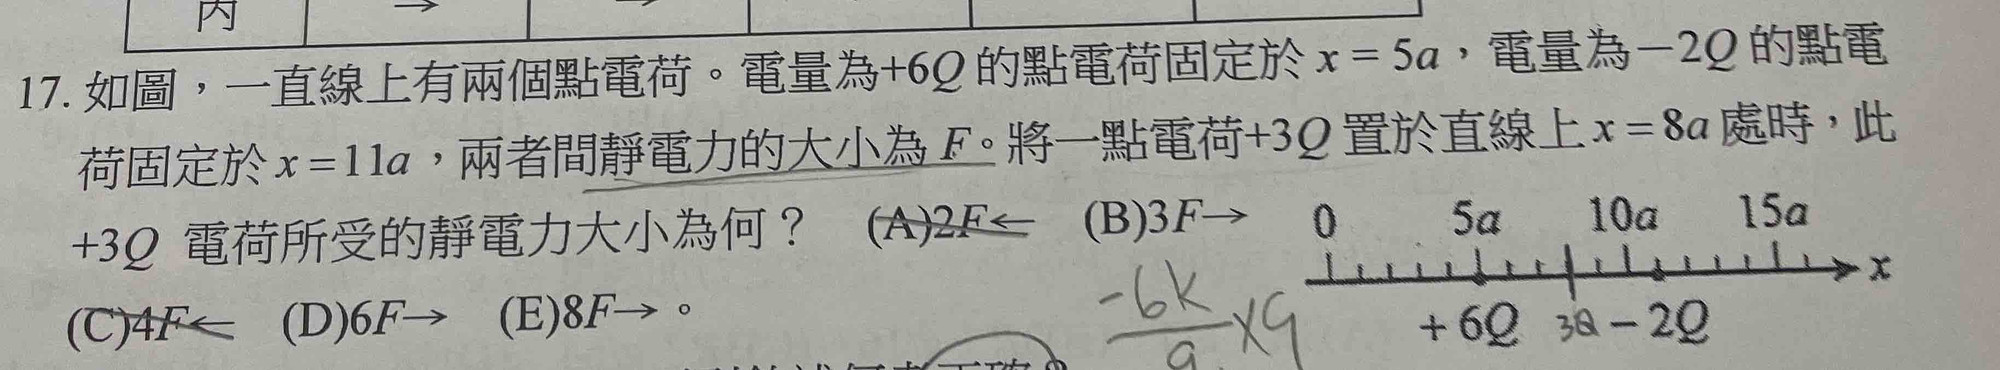 丙 → →
17. 如圖，一直線上有兩個點電荷。電量為+6Q 的點電荷固定於 x = 5a，電量為－2Q 的點電
荷固定於 x = 11a，兩者間靜電力的大小為 F。將一點電荷+3Q 置於直線上 x = 8a 處時，此
+3Q 電荷所受的靜電力大小為何？ (A)2F← (B)3F→
(C)4F← (D)6F→ (E)8F→。
0 5a 10a 15a
x
+6Q 3Q －2Q
-6K
9 ×9